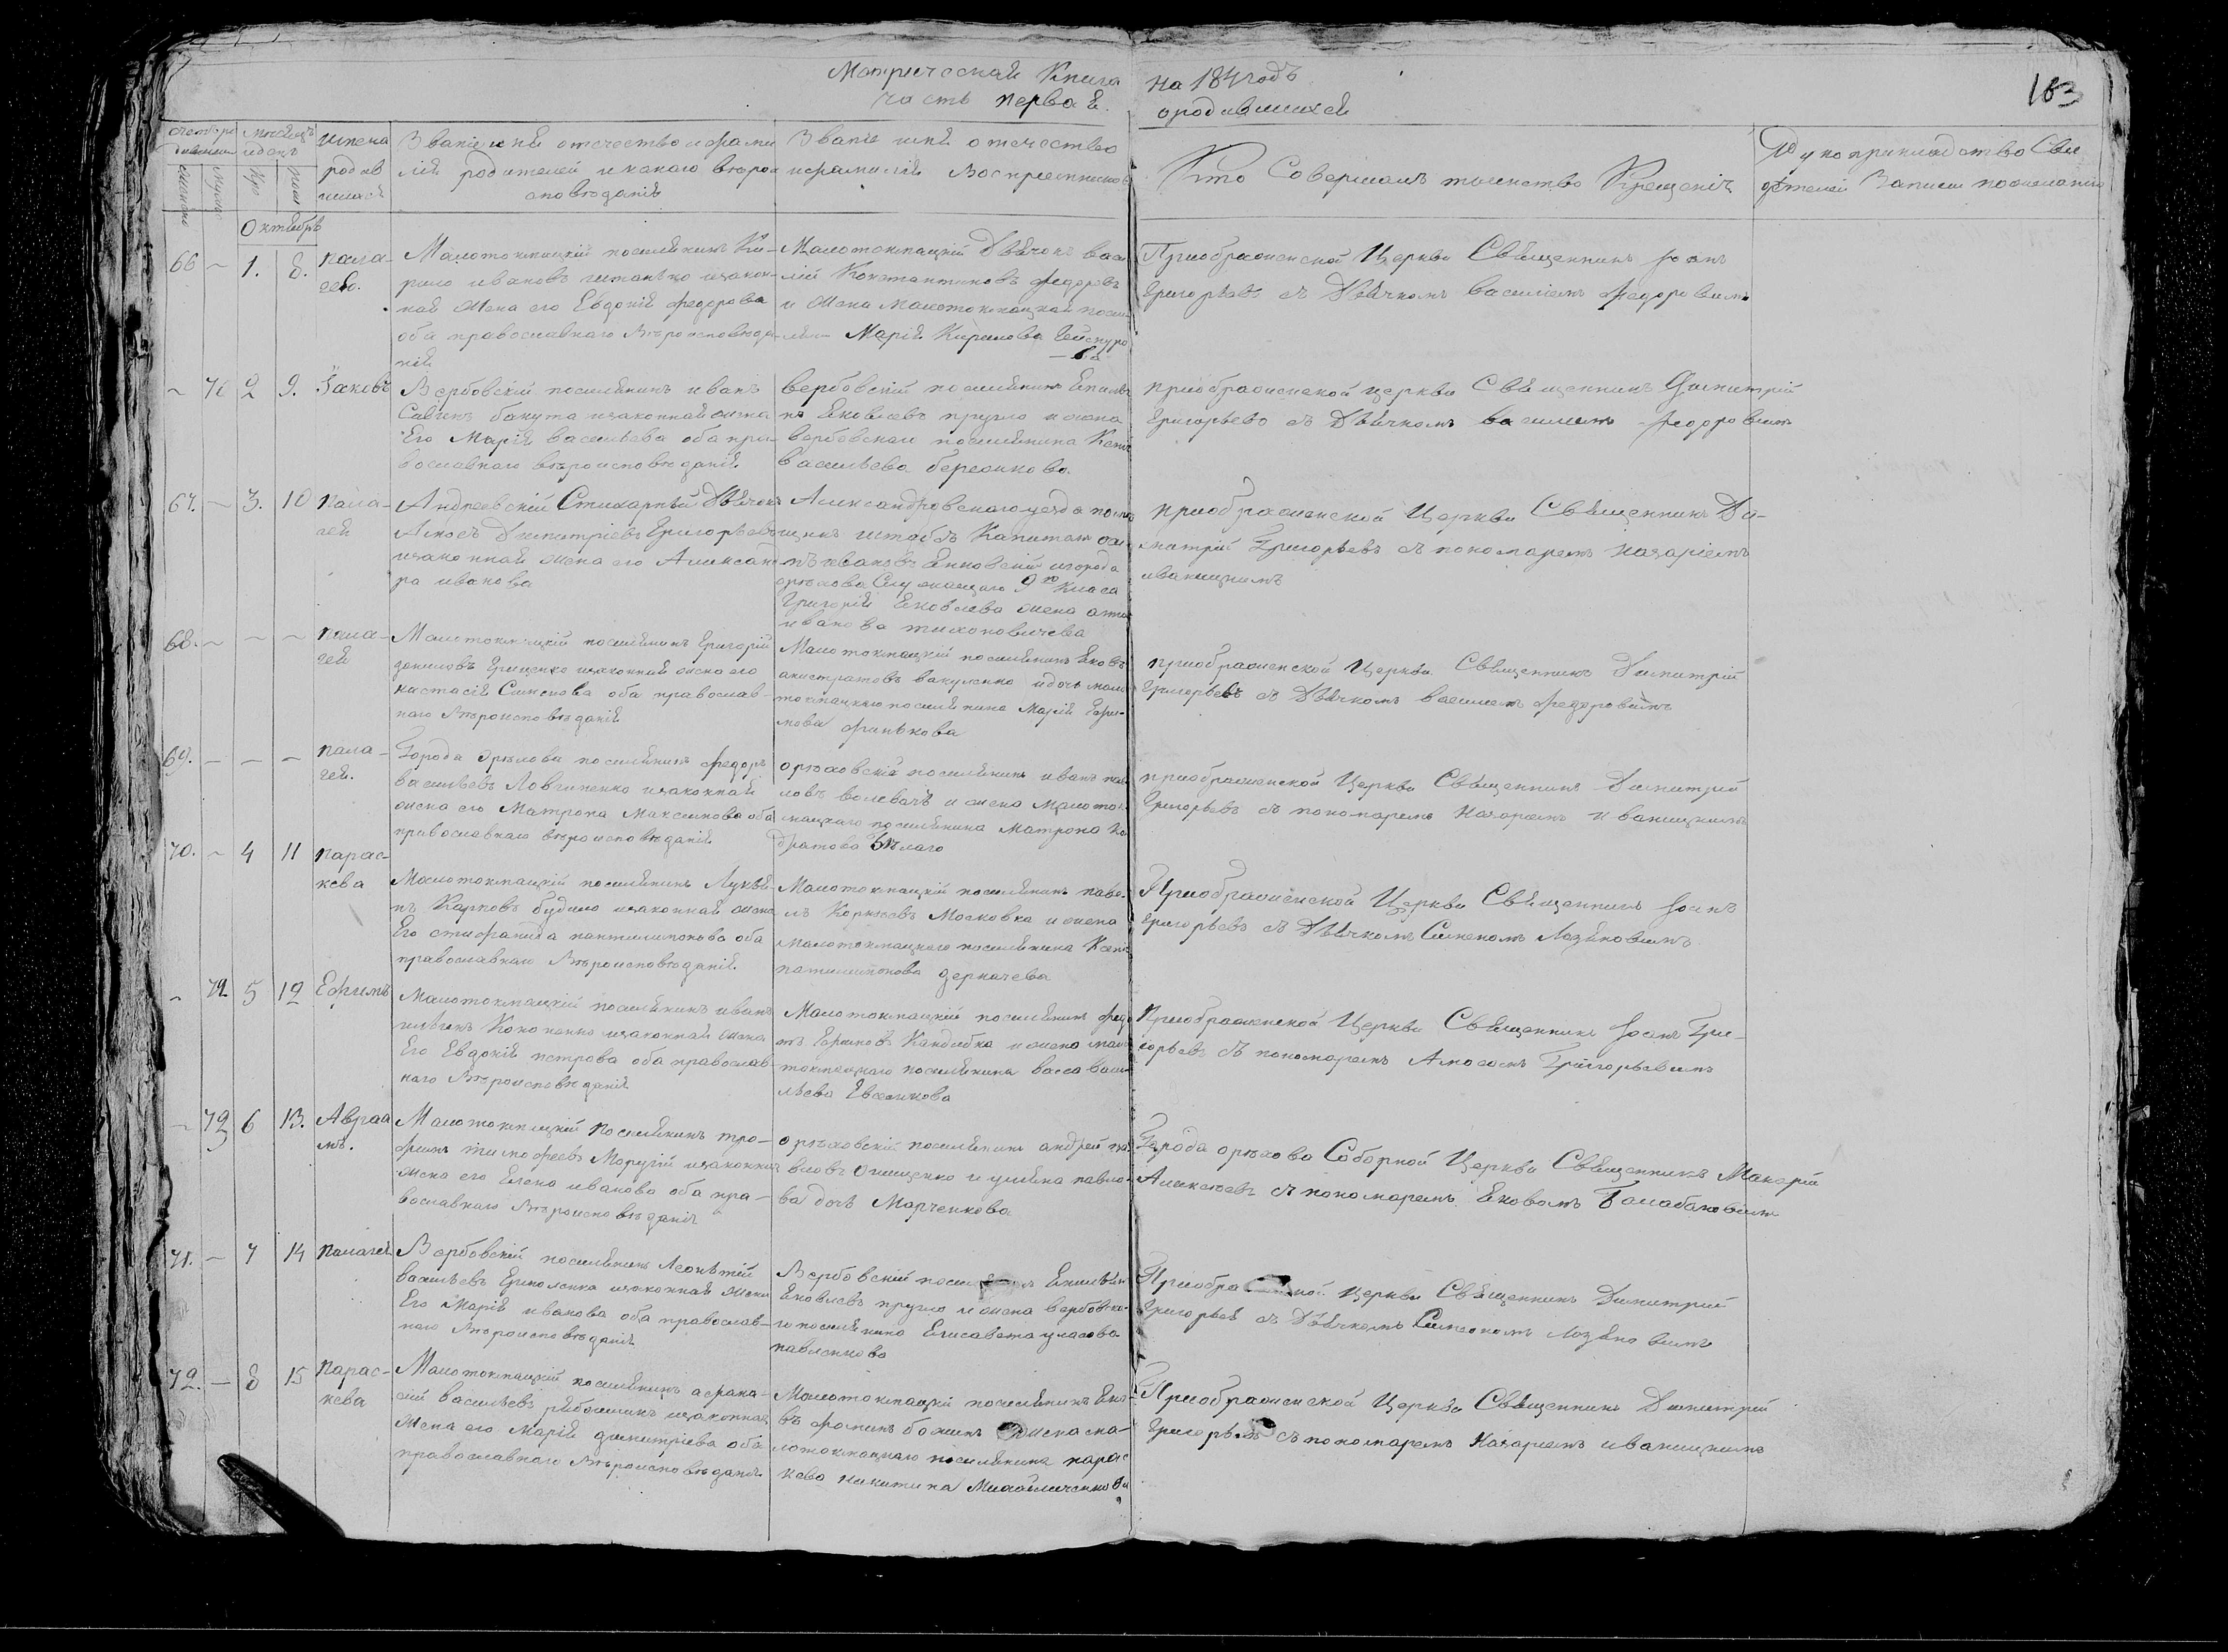 Метрическая Книга на 184 годъ
часть первая. о родившихся
163
Званіе имя отечество и фами
лія родителей и какого вѣро
исповѣданія
Званіе имя отечество
и фамилія Воспреемников
Кто Совершалъ таинство Крещенія
Рукоприкладство Сви
дѣтелей Записи по желанію
имена
родив
шихся
Октябрь
66 ~ 1. 8. пала-
гея.
Малотокмацкій поселянинъ Ки-
рило ивановъ изакон-
ная жена его Евдокія федорова
оба православнаго вѣроисповѣда-
нія
Малотокмацкій Дьячокъ васи
лій Константиновъ федоровъ
и жена малотокмацкаго посе
Марія Кирилова
Приображенской Церкви Священникъ Іоанъ
Григорьевъ съ Дьячкомъ василіемъ федоровымъ
~ 2 9. Іаковъ
Вербовскій поселянинъ иванъ
Савинъ бакута изаконная жена
Его Марія васильева оба пра-
вославнаго вѣроисповѣданія
вербовскій поселянинъ
Яковлевъ кругло и жена
вербовскаго поселянина
васильева
приображенской церкви Священникъ Димитрій
Григорьевъ съ Дьячкомъ василіемъ федоровымъ
67. ~ 3. 10 пала-
гея
Андреевскій Стихарный Дьячокъ
Амосъ Димитріевъ Григорьевъ
изаконная жена его Александ
ра иванова
Александровскаго уезда
штабсъ Капитанъ
ивановъ игорода
орѣхова Служащаго 9го класа
Григорія Яковлева жена
иванова тихоновичева
приображенской Церкви Священникъ Ди-
митрій Григорьевъ съ пономаремъ назаріемъ
иваницкимъ
68. ~ ~ ~ пала-
гея
Малотокмацкій поселянинъ Григорій
даниловъ Гриценко изаконная жена его
настасія Симонова оба православ-
наго вѣроисповѣданія
Малотокмацкій поселянинъ Яковъ
вакуленко и дочь мало
токмацкаго поселянина Марія Ефи-
мова финькова
приображенской Церкви Священникъ Димитрій
Григорьевъ съ Дьячкомъ василіемъ федоровымъ
69. – – – пала-
гея.
Города Орѣхова поселянинъ федоръ
васильевъ Ловгиненко изаконная
жена его Матрона Максимова оба
православнаго вѣроисповѣданія
орѣховскій поселянинъ иванъ пав
ловъ волевачъ и жена малоток
мацкаго поселянина Матрона Ко
дратова бѣлаго
приображенской Церкви Священникъ Димитрій
Григорьевъ съ пономаремъ Назаріемъ иваницкимъ
70. ~ 4 11 парас-
кева
Малотокмацкій поселянинъ Лукья-
нъ Карповъ будило изаконная жена
Его стифанида пантилимонова оба
православнаго вѣроисповѣданія
Малотокмацкій поселянинъ паве-
лъ Корнѣевъ Московка и жена
малотокмацкаго поселянина Ксен
патилимонова деркачева
Приображенской Церкви Священникъ Іоанъ
Григорьевъ съ Дьячкомъ Симеономъ Лазяновымъ
~ 5 12 Ефимъ
Малотокмацкій поселянинъ иванъ
Кононенко изаконная жена
Его Евдокія петрова оба православ-
наго вѣроисповѣданія
Малотокмацкій поселянинъ федо
тъ Ефимовъ Кандибка и жена мало
токмацкаго поселянина васса васи
льева Евсикова
Приображенской Церкви Священникъ Іоанъ Гри-
горьевъ съ пономаремъ Амосомъ Григорьевымъ
~ 6 13. Авраа
мъ.
Малотокмацкій поселянинъ тро-
фимъ тимофеевъ Моруній изаконная
жена его Елена иванова оба пра-
вославнаго вѣроисповѣданія
орѣховскій поселянинъ андрей па
вловъ Онищенко и уліяна павло-
ва дочь Марченкова
Города орѣхова Соборной Церкви Священникъ Макарій
Алексеевъ съ пономаремъ Яковомъ Балабановымъ
71. ~ 7 14 палагея
Вербовскій поселянинъ Леонтій
васильевъ Ермоленка изаконная жена
Его Марія иванова оба православ-
наго вѣроисповѣданія
Вербовскій
Яковлевъ кругло и жена вербовска-
го поселянина Елисавета уласова
павленкова
Церкви Священникъ Димитрий
Григорьев съ Дьячкомъ Симеономъ Лазяновымъ
72. – 8 15 парас-
кева
Малотокмацкій поселянинъ афана-
сій васильевъ рибалкинъ изаконная
жена его Марія димитріева оба
православнаго вѣроисповѣданія
Малотокмацкій поселянинъ Яко-
въ фоминъ божинъ жена ма-
лотокмацкаго поселянина парас
кева никитина Михайличенкова
Приображенской Церкви Священникъ Димитрій
Григорьевъ съ пономаремъ Назаріемъ иваницкимъ